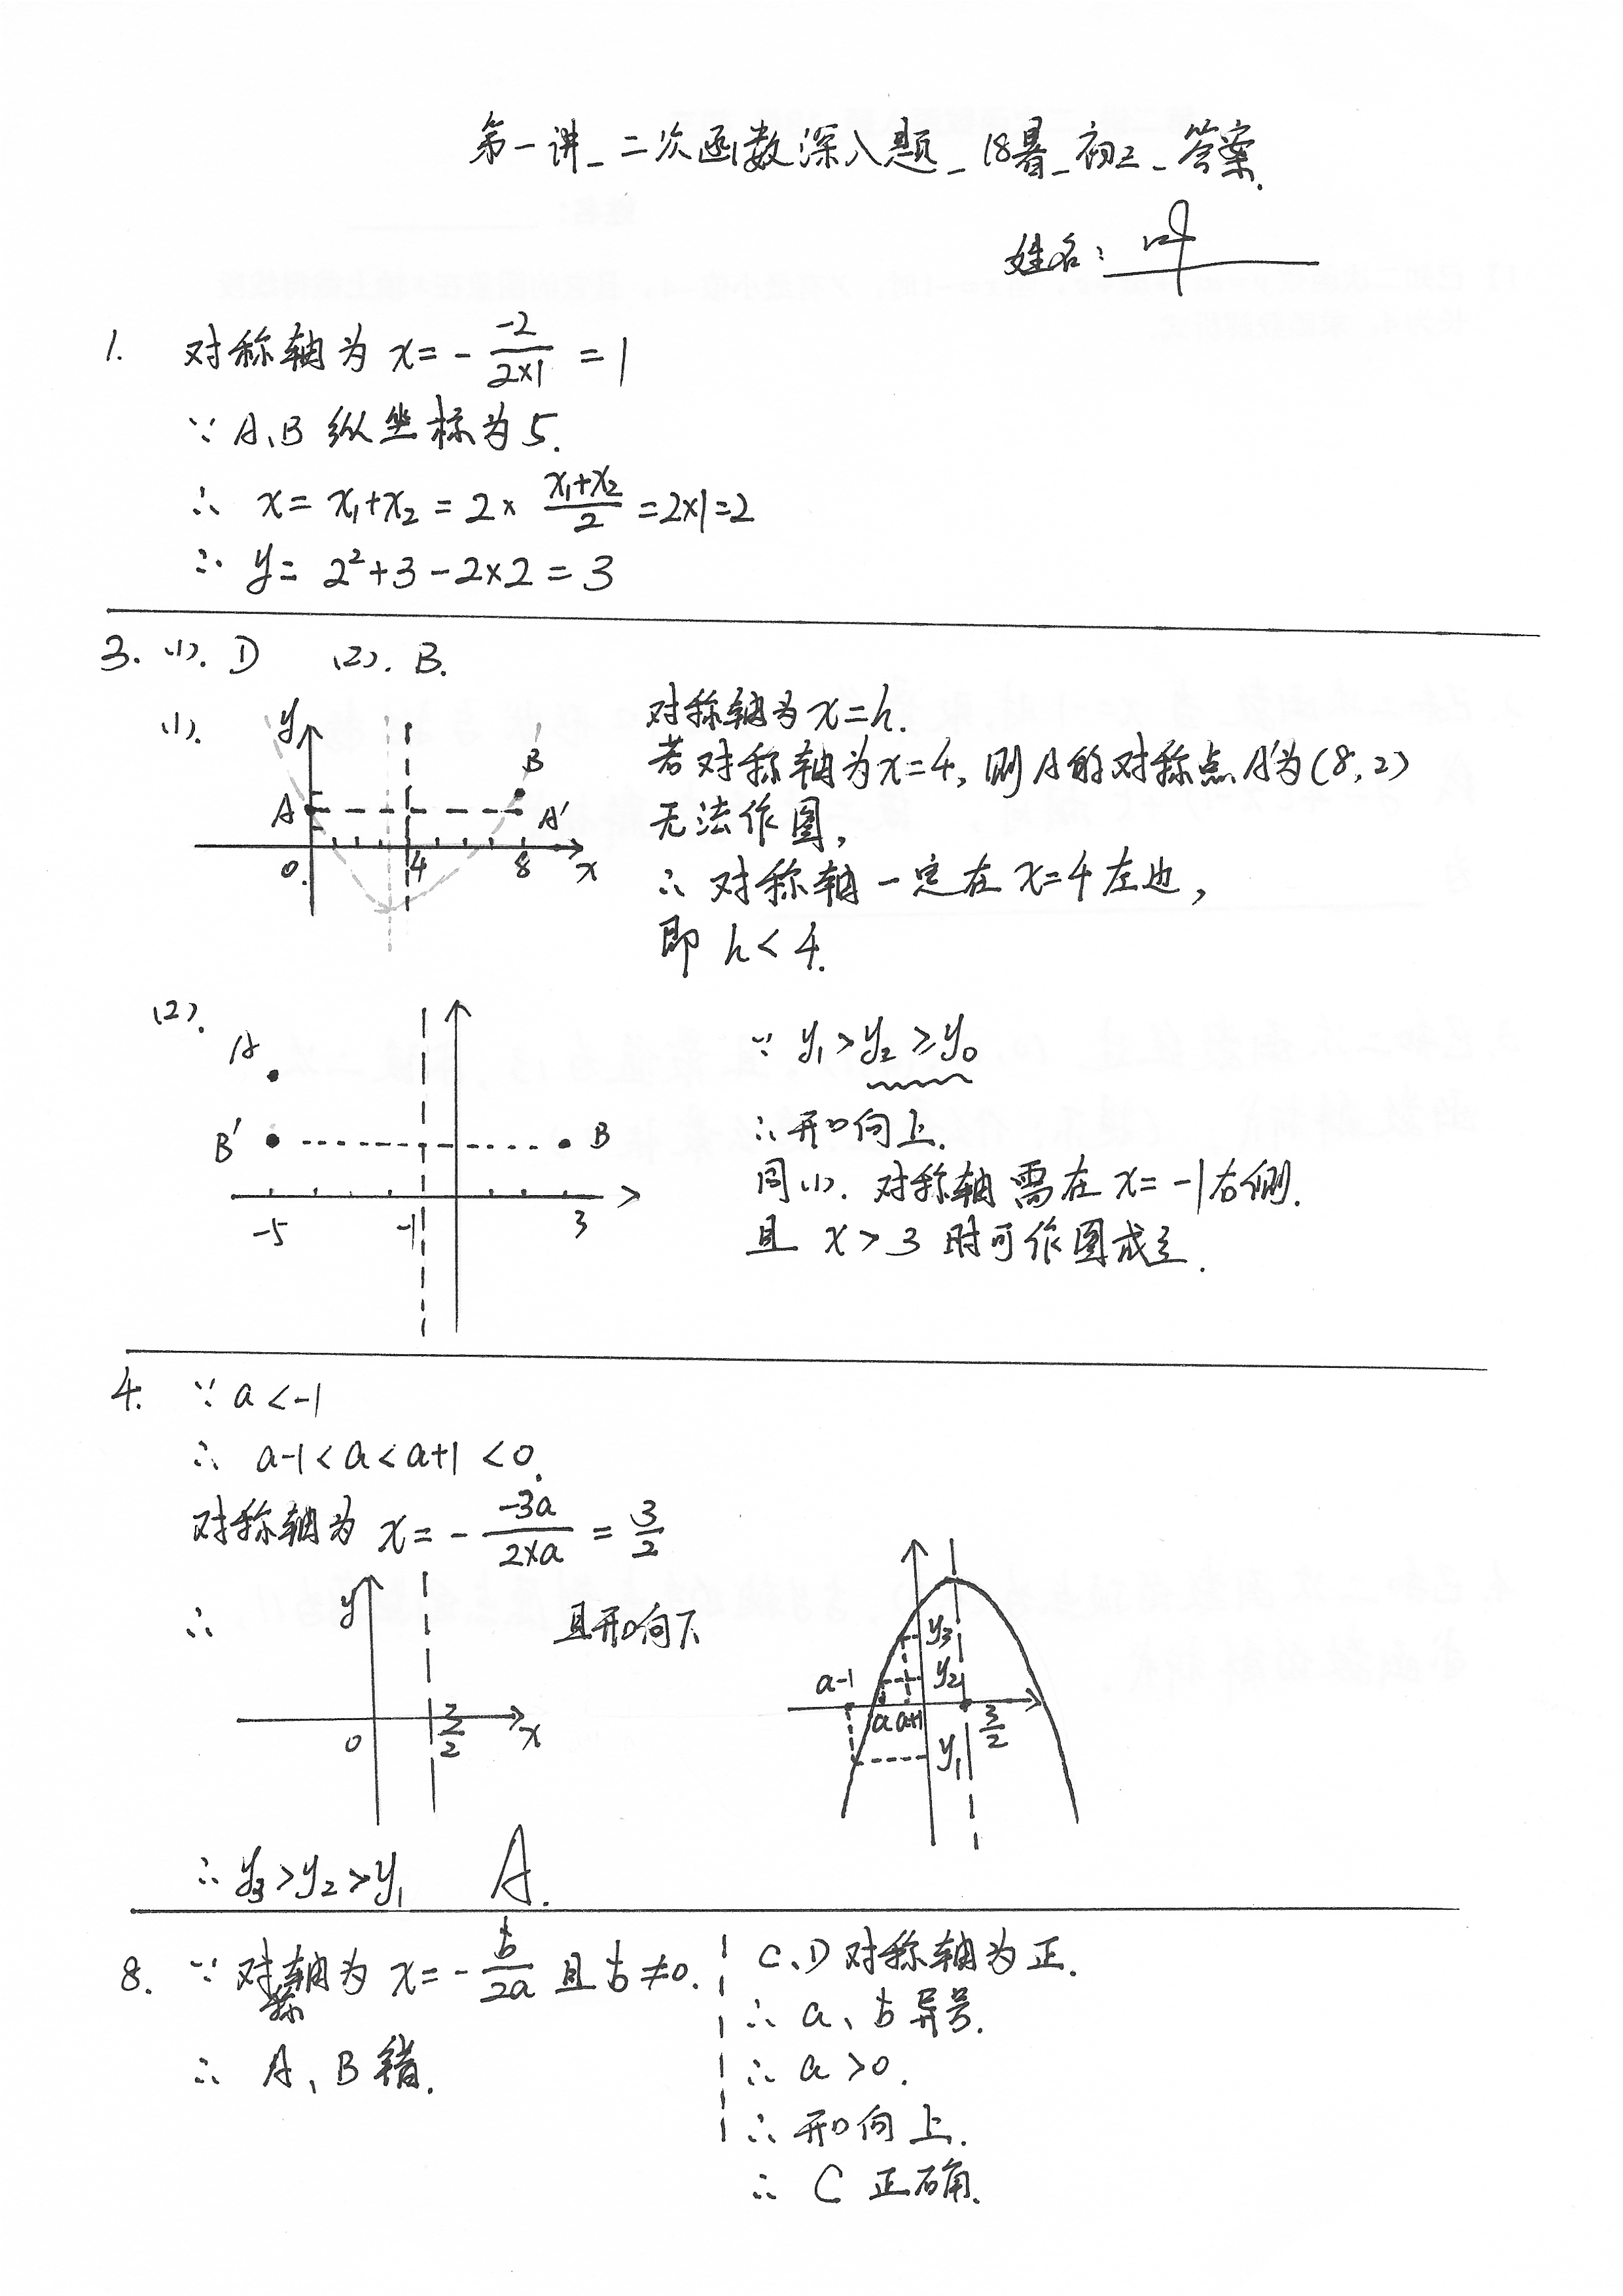 第一讲_二次函数深入题_18暑_初三_答案.
姓名: 叶
1. 对称轴为 x = - -2/(2×1) = 1
∵ A、B 纵坐标为 5.
∴ x = x₁+x₂ = 2 × (x₁+x₂)/2 = 2×1=2
∴ y = 2²+3-2×2 = 3
3. (1). D (2). B.
(1).
y
B
A
A′
0.
4
8
x
对称轴为 x=h.
若对称轴为 x=4, 则 A 的对称点 A′为(8,2)
无法作图,
∴ 对称轴一定在 x=4 左边,
即 h<4.
(2).
A
B′
B
-5
-1
3
∵ y₁>y₂≥y₀
∴ 开口向上.
同(1). 对称轴需在 x=-1右侧.
且 x>3 时可作图成立.
4. ∵ a<-1
∴ a-1<a<a+1<0.
对称轴为 x = - -3a/(2×a) = 3/2
∴
y
0
3/2
x
且开口向下
y₃
y₂
a-1
a
a+1
3/2
y₁
∴ y₃>y₂>y₁ A.
8. ∵ 对称轴为 x = - b/2a 且 b≠0.
∴ A、B 错.
C、D 对称轴为正.
∴ a、b 异号.
∴ a>0.
∴ 开口向上.
∴ C 正确.